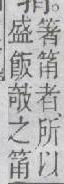 箸筩者所以
盛飯攲之筩